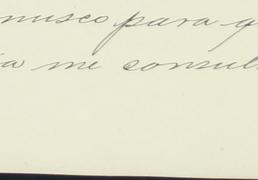 nusco para q
a me consul